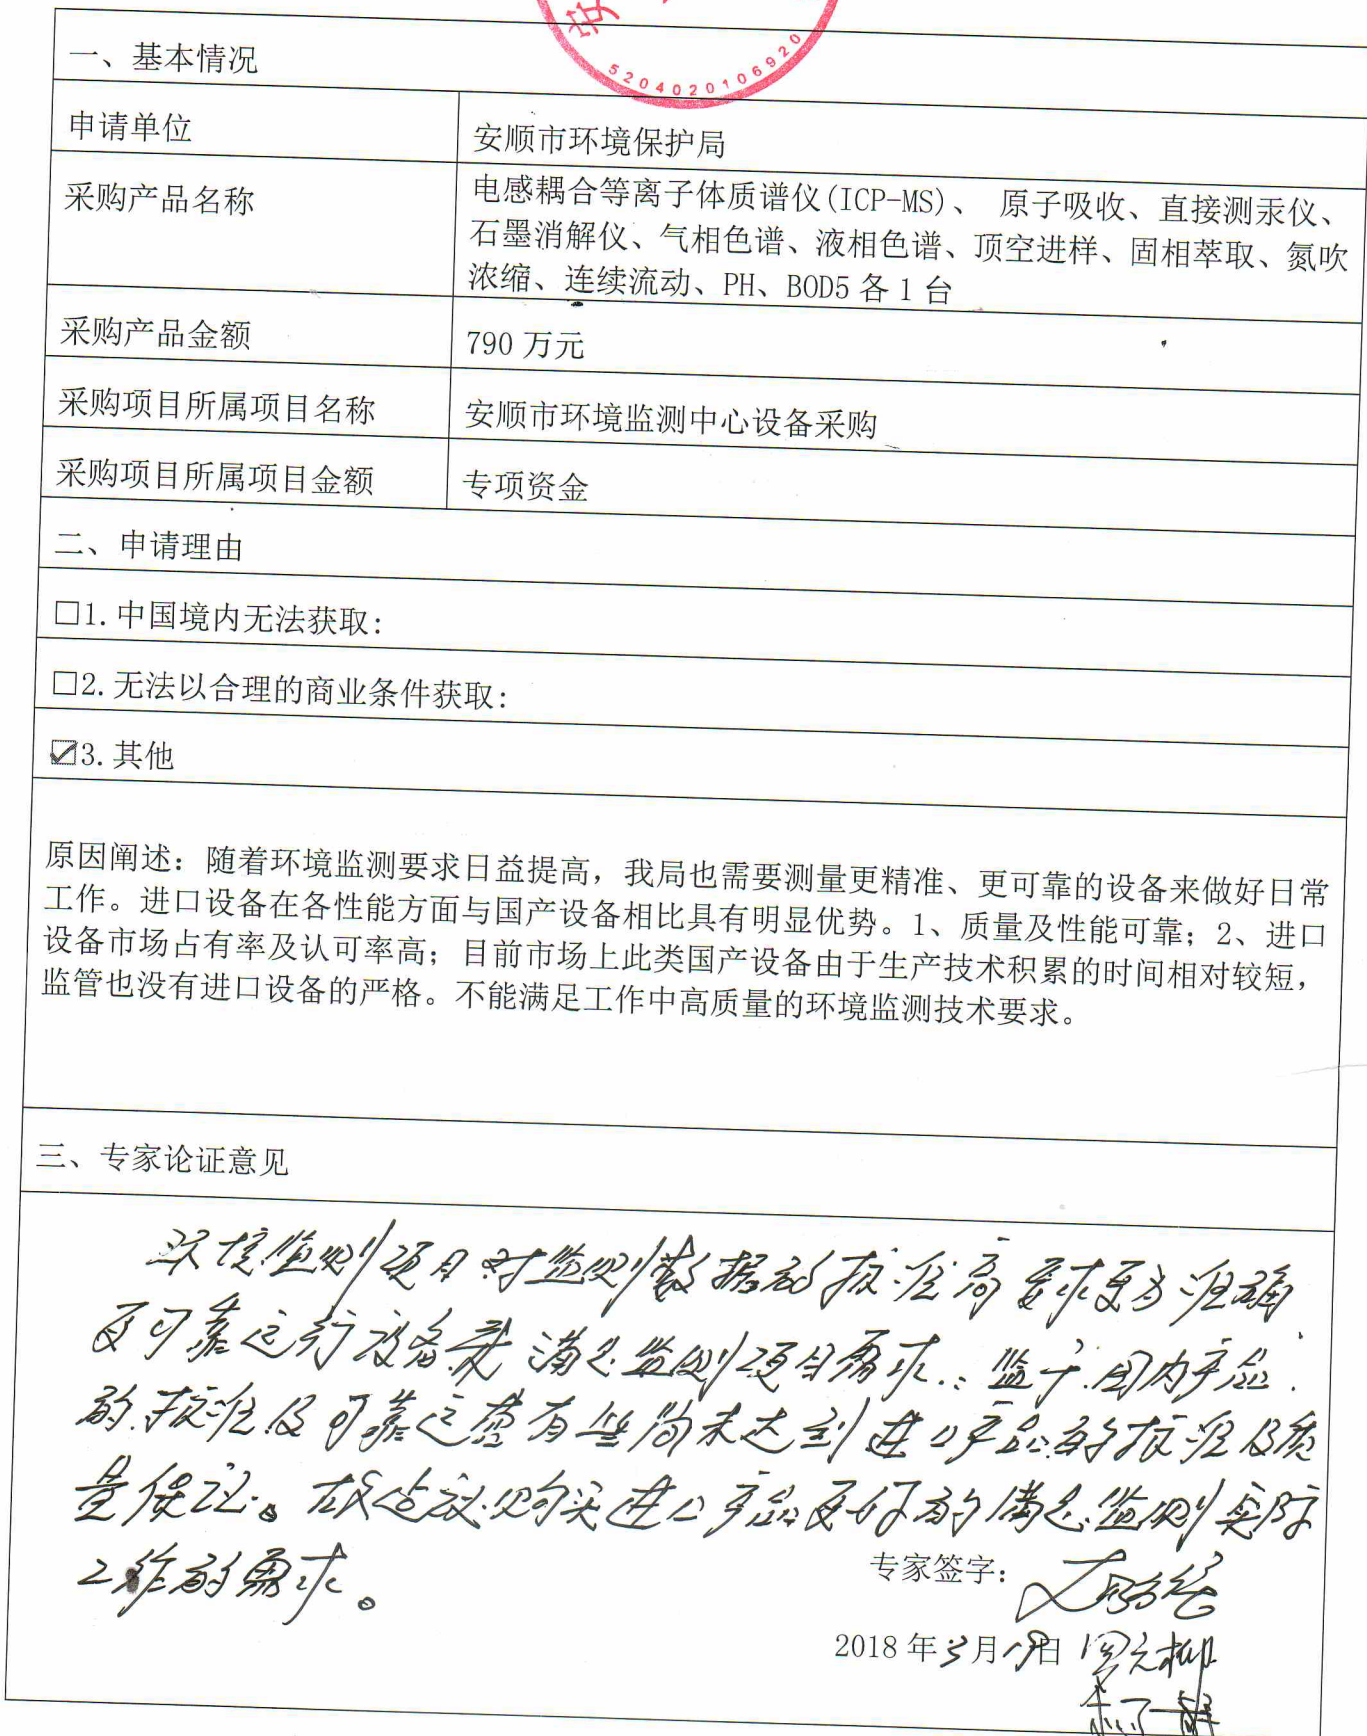 安
5204020106920
一、基本情况
申请单位
安顺市环境保护局
采购产品名称
电感耦合等离子体质谱仪(ICP-MS)、 原子吸收、直接测汞仪、
石墨消解仪、气相色谱、液相色谱、顶空进样、固相萃取、氮吹
浓缩、连续流动、PH、BOD5 各 1 台
采购产品金额
790 万元
采购项目所属项目名称
安顺市环境监测中心设备采购
采购项目所属项目金额
专项资金
二、申请理由
□1.中国境内无法获取:
□2.无法以合理的商业条件获取:
☑3.其他
原因阐述：随着环境监测要求日益提高，我局也需要测量更精准、更可靠的设备来做好日常
工作。进口设备在各性能方面与国产设备相比具有明显优势。1、质量及性能可靠；2、进口
设备市场占有率及认可率高；目前市场上此类国产设备由于生产技术积累的时间相对较短，
监管也没有进口设备的严格。不能满足工作中高质量的环境监测技术要求。
三、专家论证意见
环境监测项目对监测数据的 高 要求更为准确
更可靠运行设备来满足监测项目需求. 鉴于国内产品
的 及可靠运营有些尚未达到进口产品的 及质
量保证。故建议购买进口产品更好的满足监测实际
工作的需求。
专家签字：
2018 年 3 月 19 日